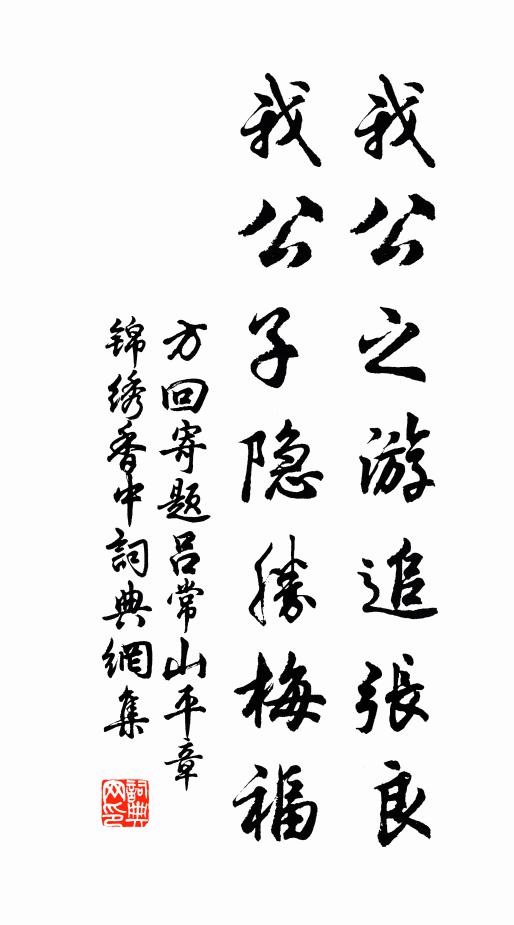 我公之游追張良
我公子隐勝梅福
方回寄題吕常山平章
锦绣香中詞典網集
詞典
网印